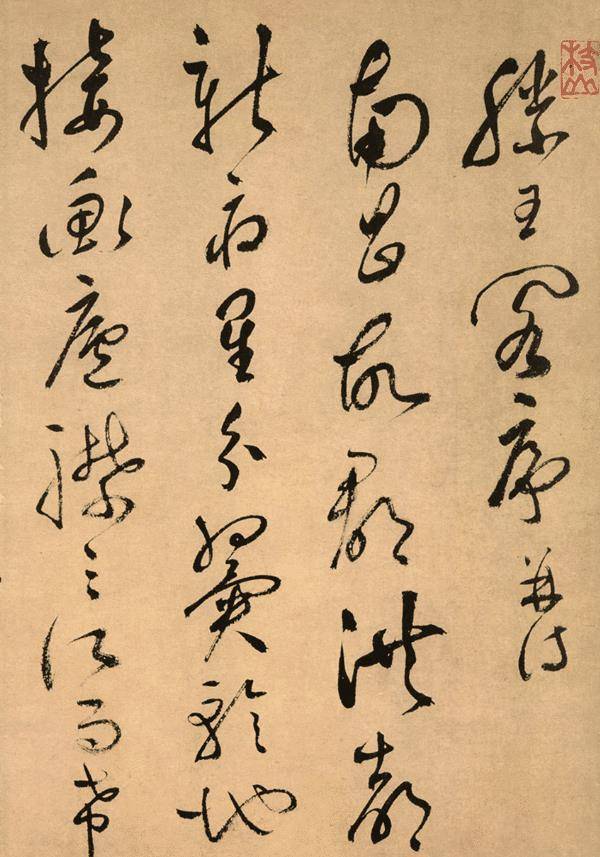 枝山
滕王閣序并詩
南昌故郡洪都
新府星分翼軫地
接衡廬襟三江而帶